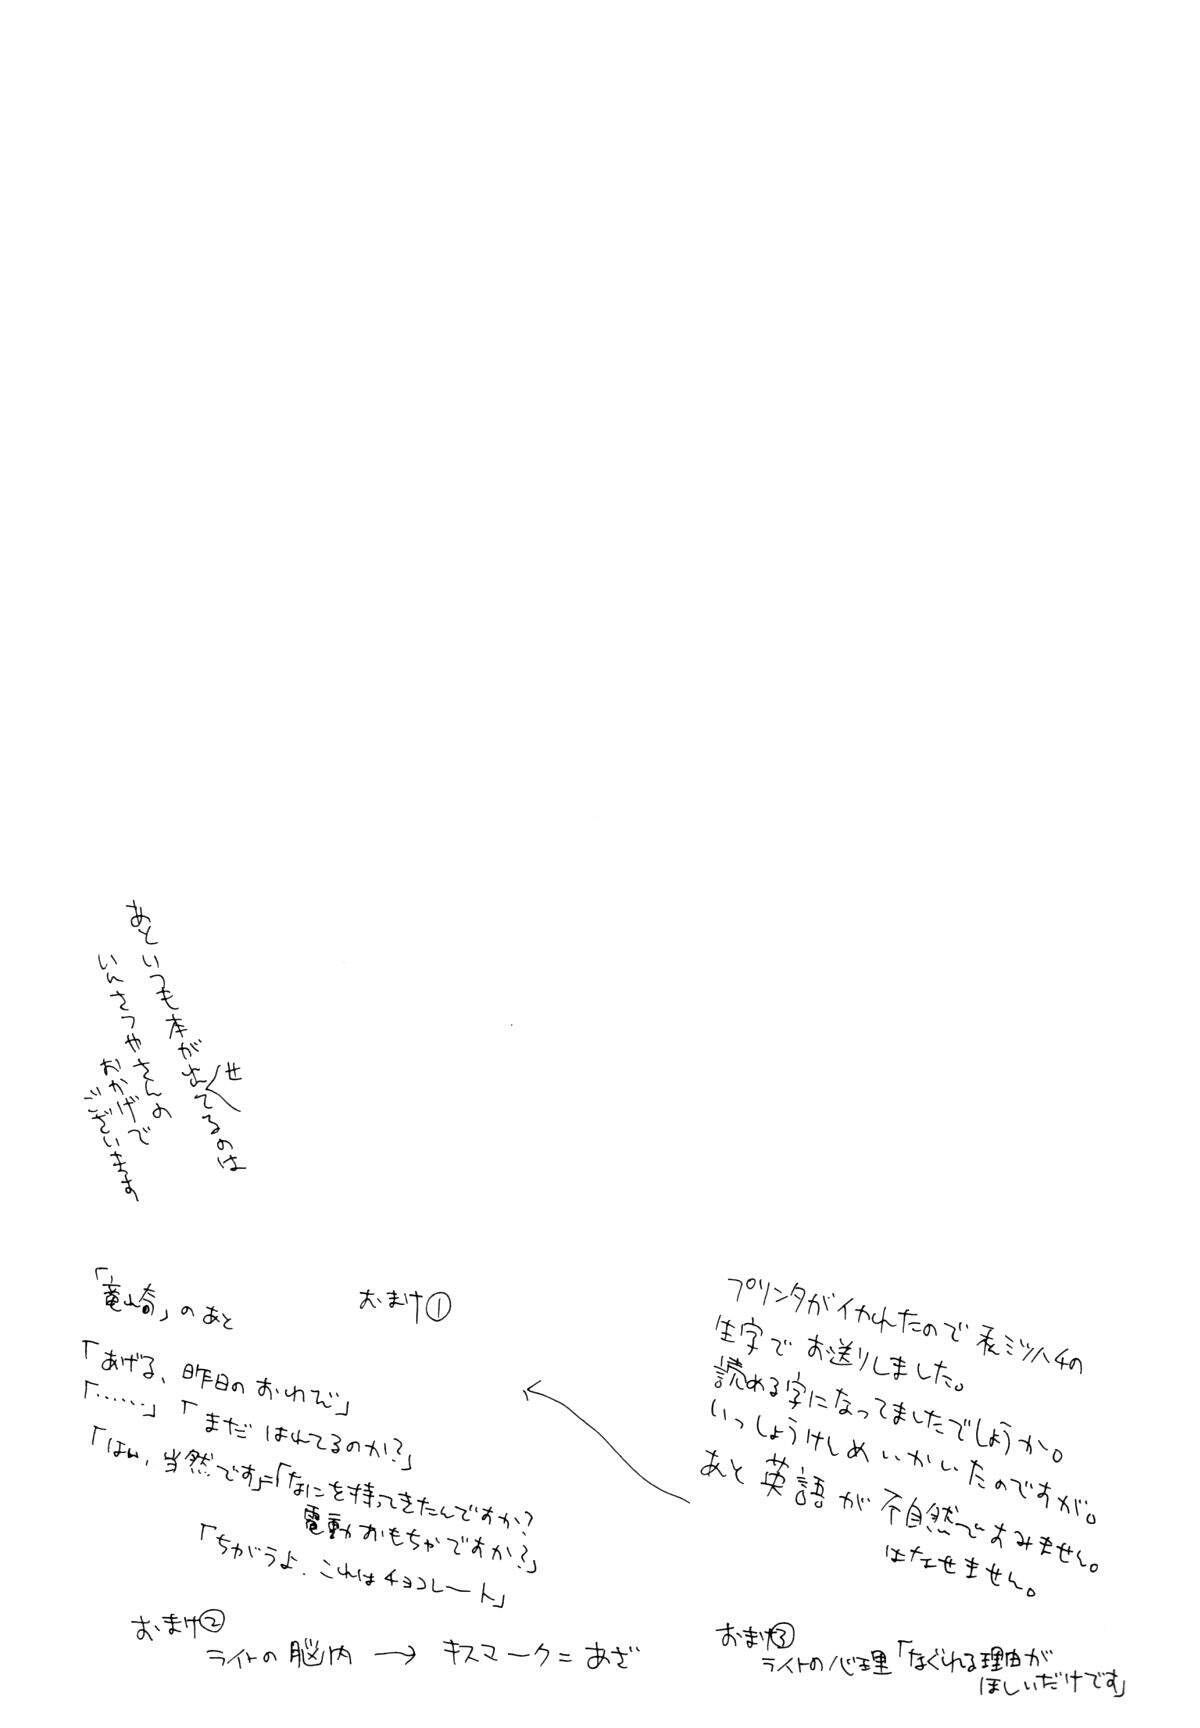 プリンタがイカれたので私ミツハチの
生字でお送りしました。
読める字になってましたでしょうか。
いっしょうけしめいかいたのですが。
あと英語が不自然ですみません。
はなせません。
おまけ③
ライトの心理「なぐれる理由が
ほしいだけです」
あといつも本が出せてるのは
いんさつやさんの
おかげで
ございます
おまけ①
「竜崎」のあと
「あげる、昨日のおわび」
「……」「まだはれてるのか?」
「はい、当然です」=「なにを持ってきたんですか?
電動おもちゃですか?」
「ちがうよ、これはチョコレート」
おまけ②
ライトの脳内→キスマーク=あざ